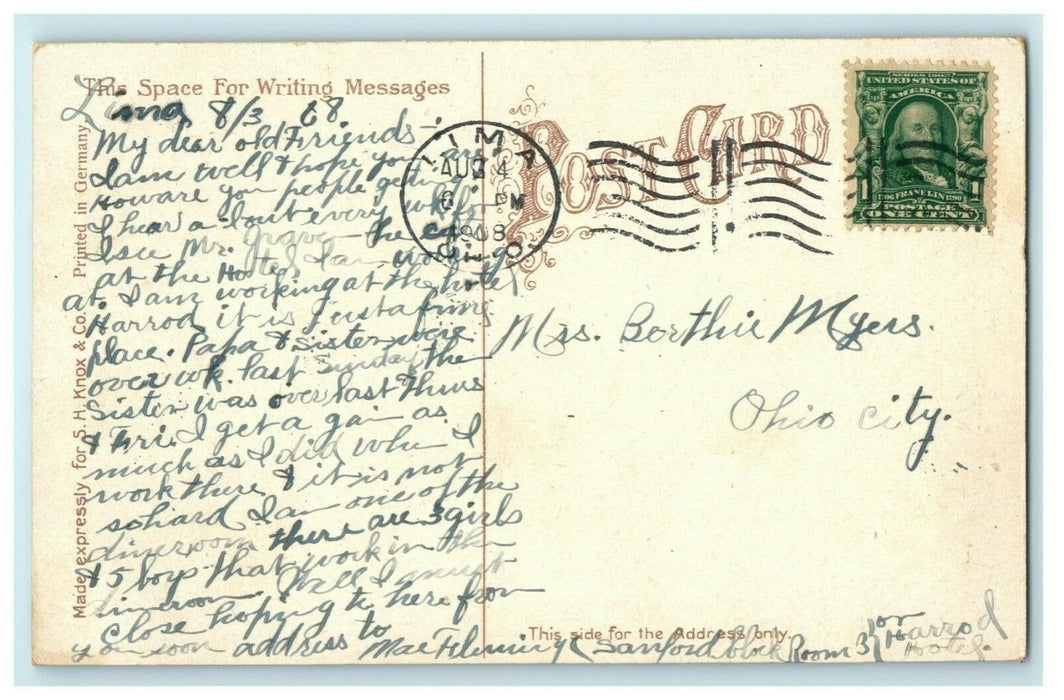 This Space For Writing Messages
Lima 8/3 08
My dear old Friends -
I am well & hope you are
Howare you people getting
I hear a bout every
I see Mr. the
at the Hotel I am working
at. I am working at the hotel
Harrod it is Just a fine
place. Papa & Sister were
over wk. last Sunday & the
Sister was over last Thurs
& Fri. I get a gain as
much as I did when I
work there & it is not
so hard I am one of the
dineroom there are 3 girls
& 5 boys that work in the
dineroom. Well I must
close hoping to here from
you soon address to
Mae Fleming Sanford block Room 3 or Harrod
Hotel.
Made expressly for S. H. Knox & Co. Printed in Germany
POST CARD
LIMA
AUG 4
6 PM
1908
OHIO
SERIES 1902
UNITED STATES OF
AMERICA
1 FRANKLIN 1
1706 1790
POSTAGE
ONE CENT
Mrs. Berthie Myers.
Ohio City.
This side for the Address only.